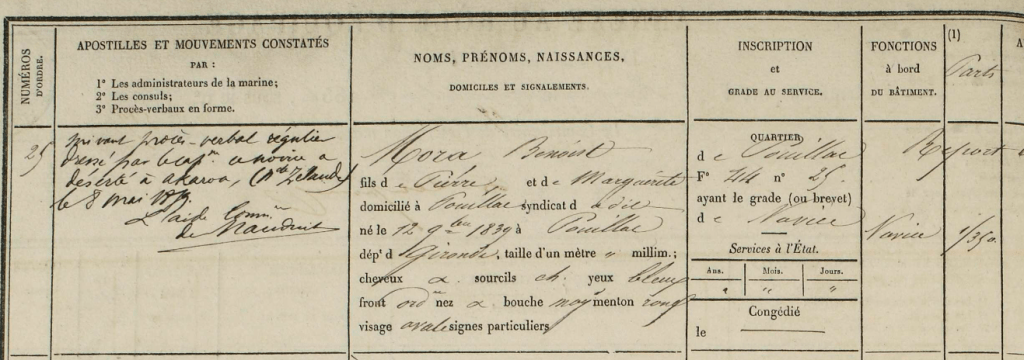 NUMÉROS D'ORDRE.
APOSTILLES ET MOUVEMENTS CONSTATÉS
PAR :
1° Les administrateurs de la marine;
2° Les consuls;
3° Procès-verbaux en forme.
NOMS, PRÉNOMS, NAISSANCES,
DOMICILES ET SIGNALEMENTS.
INSCRIPTION
et
GRADE AU SERVICE.
FONCTIONS
à bord
DU BÂTIMENT.
(1)
Parts
25
suivant procès-verbal régulier
dressé par le cap.ne ce novice a
déserté à akaroa, (N.lle Zélande)
le 8 mai
L'aide Comm.re
Mora Benoist
fils de Pierre et de Marguerite
domicilié à Pouillac syndicat d dic
né le 12 9bre 1839 à Pouillac
dép.t d Gironde, taille d'un mètre " millim;
cheveux sourcils ch. yeux bleus
front ord.re nez bouche moy. menton rond
visage ovale signes particuliers
QUARTIER
de Pouillac
F° 44 n° 25.
ayant le grade (ou brevet)
d Novice
Services à l'État.
Ans. Mois. Jours.
" " "
Congédié
le
Report
Novice
1/350.